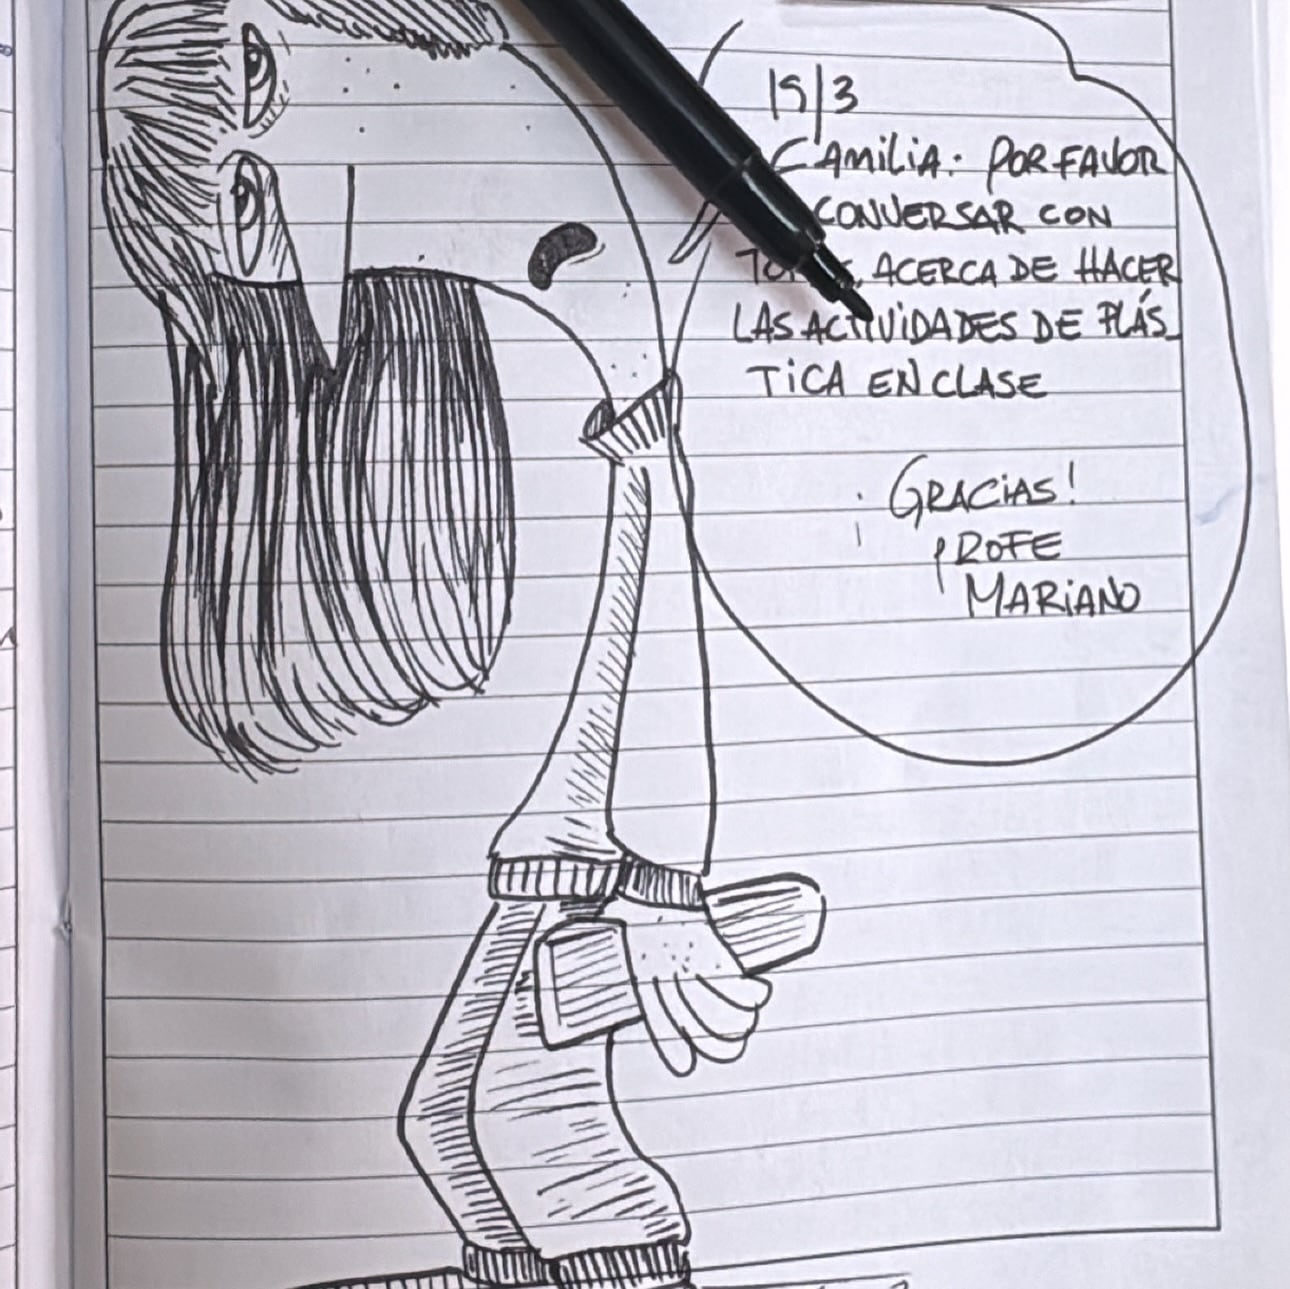 15/3
Familia: por favor
conversar con
acerca de hacer
las actividades de plás
tica en clase
Gracias!
profe
Mariano